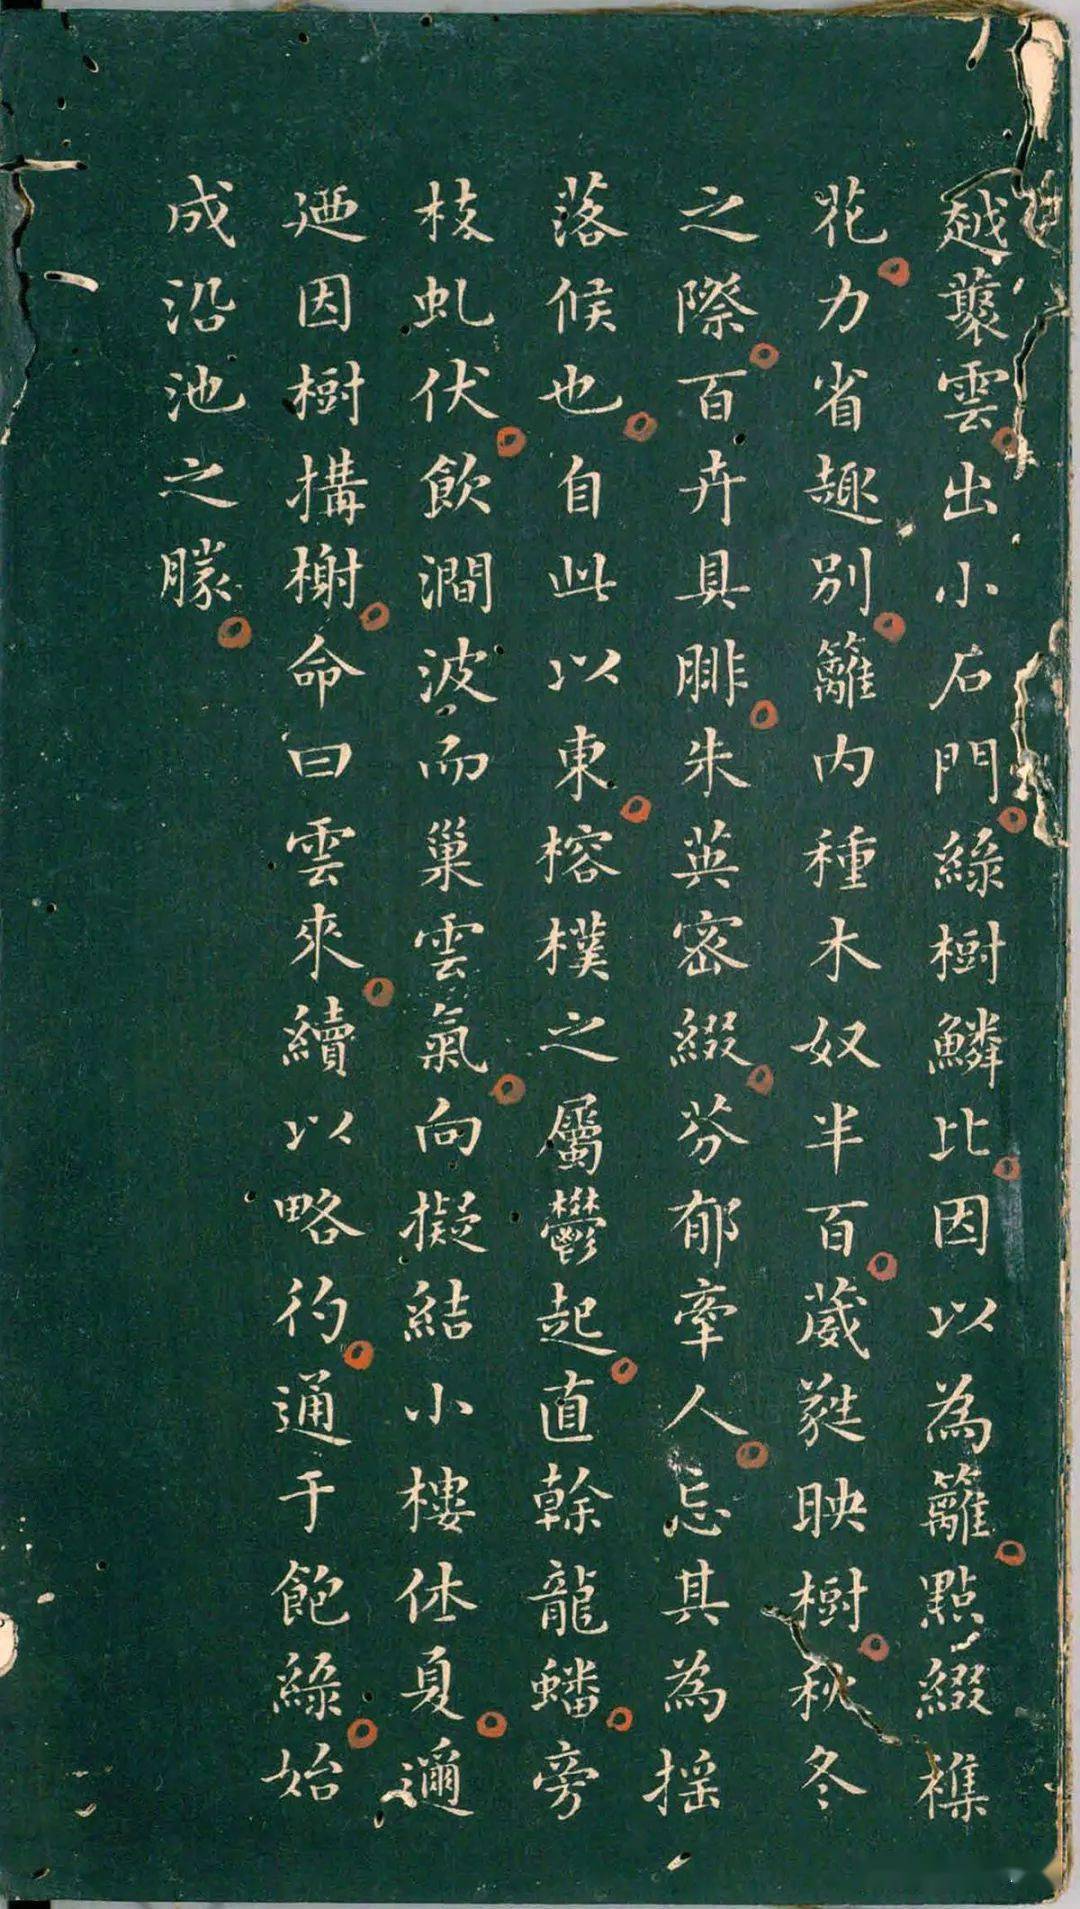 越藂雲出小石門綠樹鱗比因以為籬點綴襍
花力省趣別籬內種木奴半百葳蕤映樹秋冬
之際百卉具腓朱英密綴芬郁牽人忘其為搖
落候也自此以東榕樸之屬鬱起直幹龍蟠旁
枝虬伏飲澗波而巢雲氣向擬結小樓休夏邇
迺因樹搆榭命曰雲來續以略彴通于飽綠始
成沿池之勝